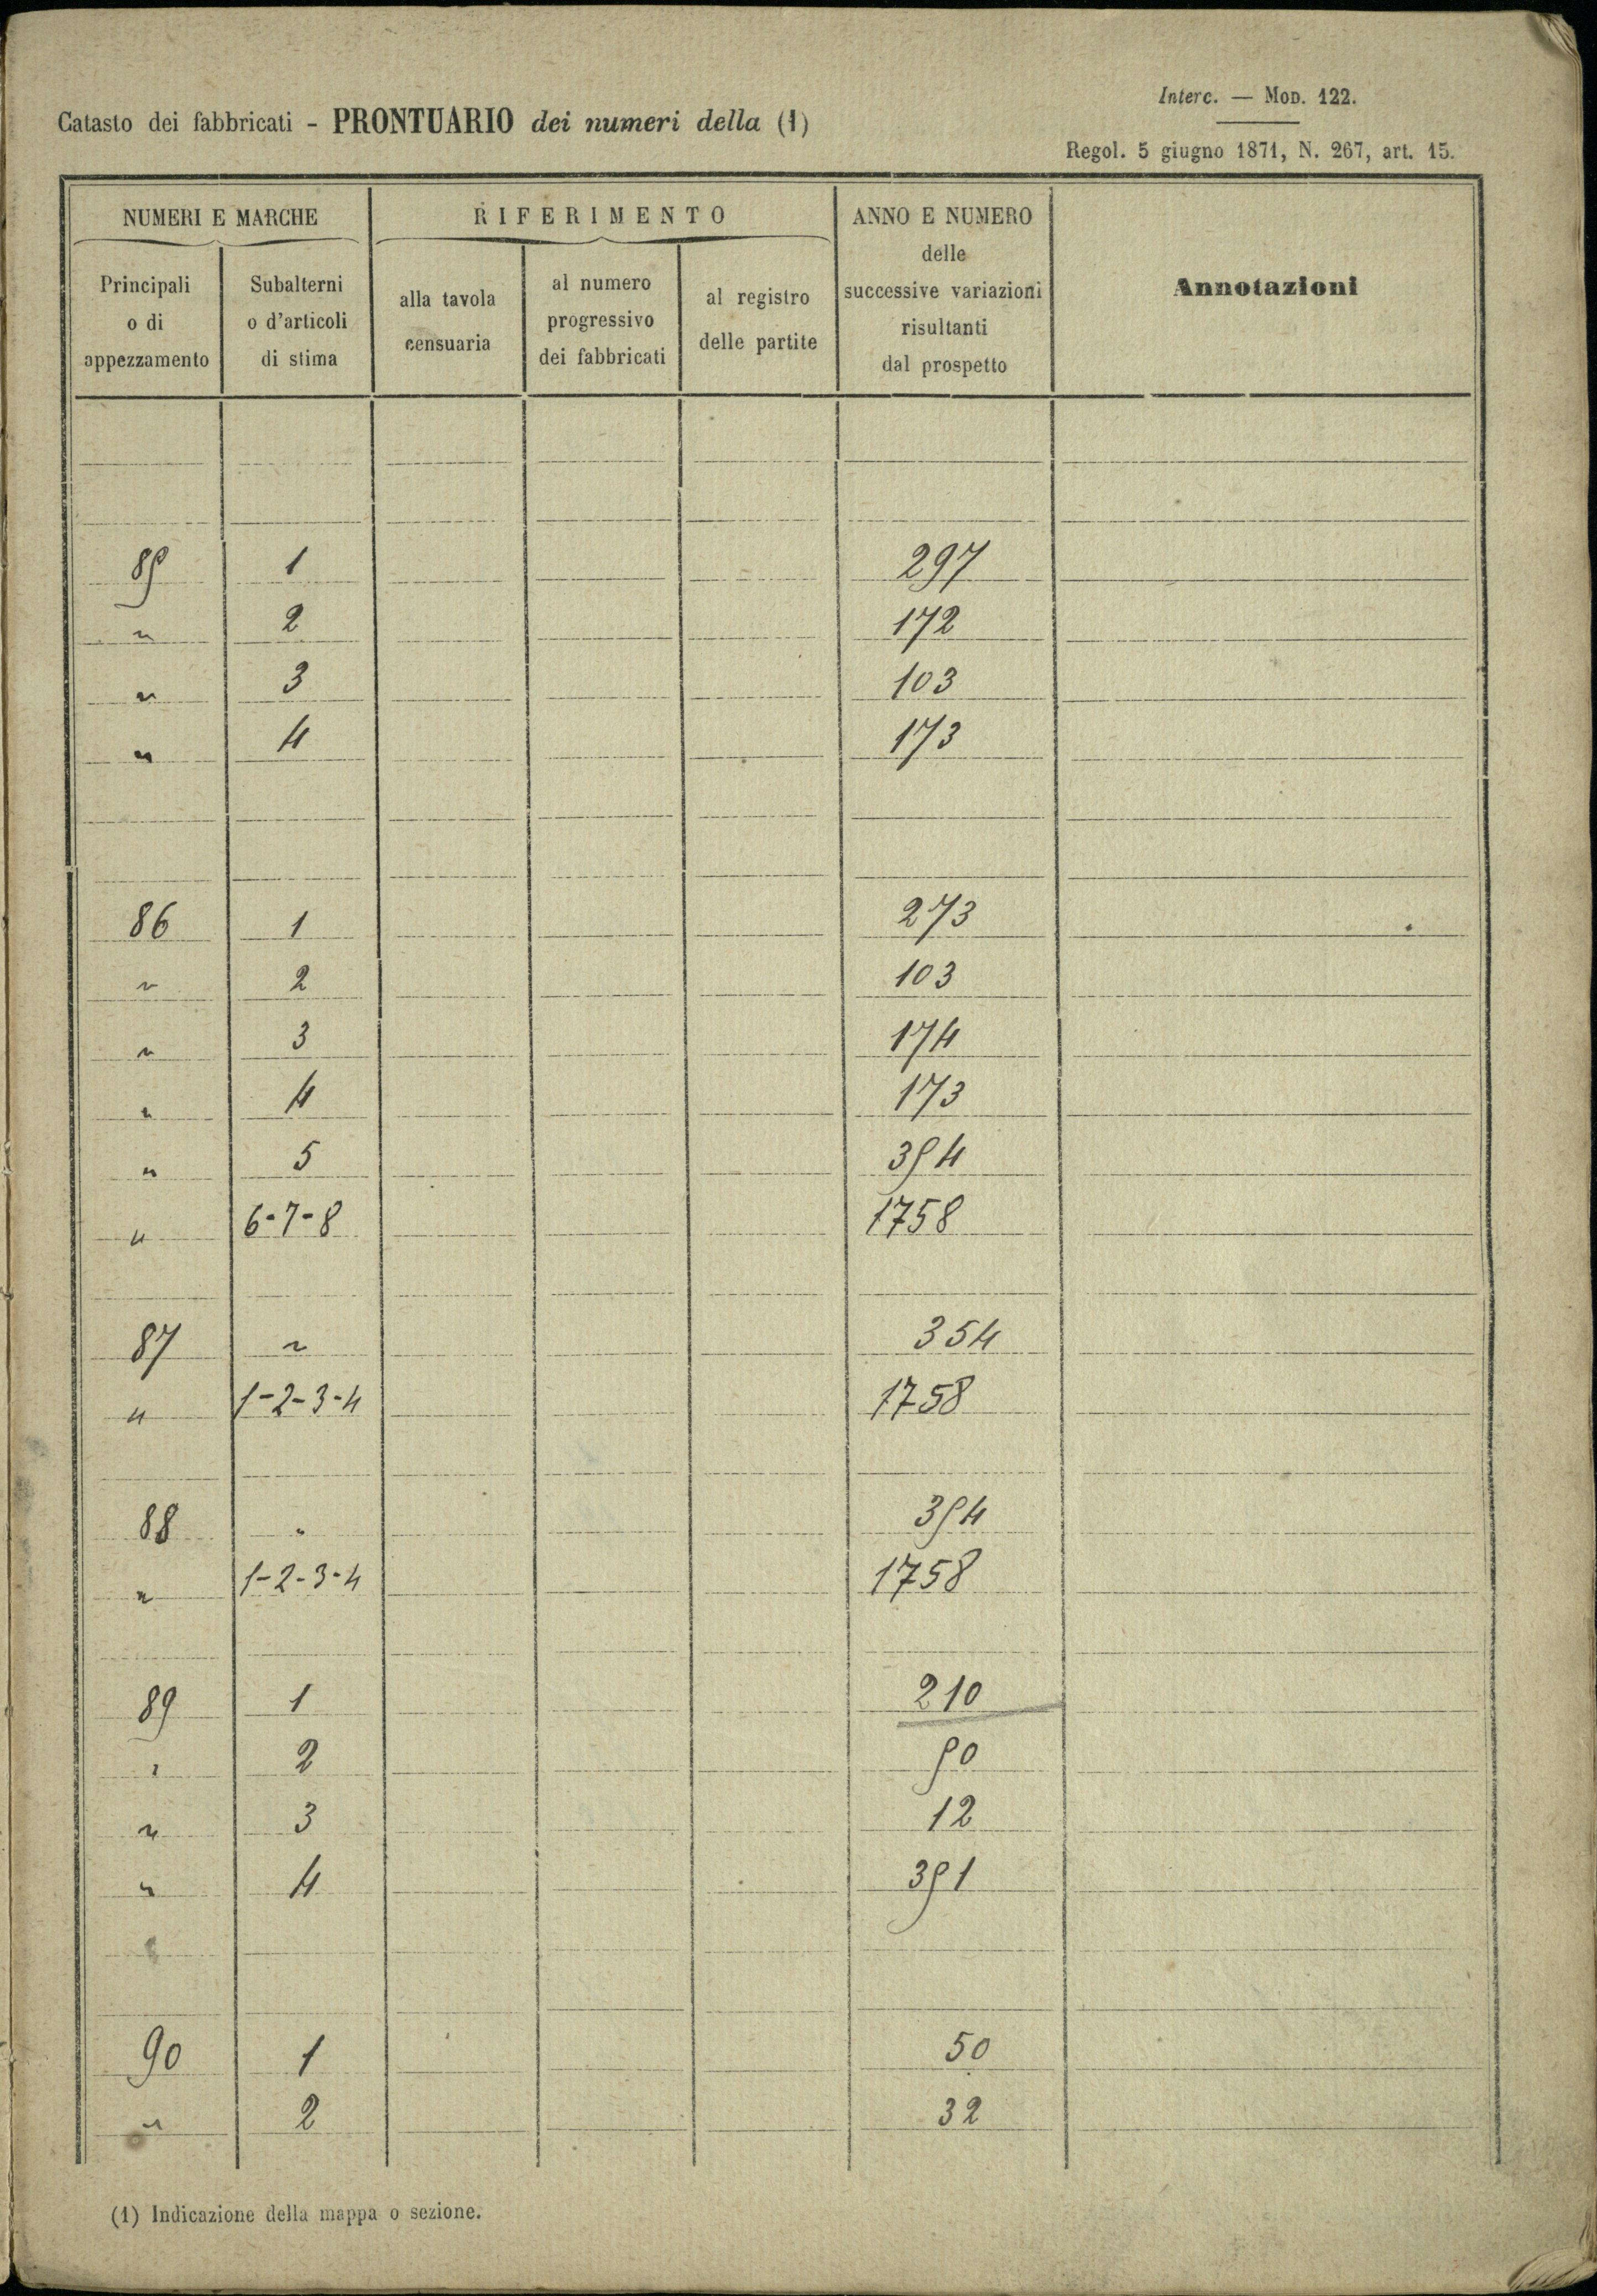 Interc. — MOD. 122.
Catasto dei fabbricati - PRONTUARIO dei numeri della (1)
Regol. 5 giugno 1871, N. 267, art. 15.
NUMERI E MARCHE RIFERIMENTO ANNO E NUMERO
delle
successive variazioni
risultanti
dal prospetto
Annotazioni
Principali
o di
appezzamento
Subalterni
o d'articoli
di stima
alla tavola
censuaria
al numero
progressivo
dei fabbricati
al registro
delle partite
85 1 297
" 2 172
" 3 103
" 4 173
86 1 273
" 2 103
" 3 174
" 4 173
" 5 354
" 6-7-8 1758
87 " 354
" 1-2-3-4 1758
88 " 354
" 1-2-3-4 1758
89 1 210
" 2 50
" 3 12
" 4 351
90 1 50
" 2 32
(1) Indicazione della mappa o sezione.